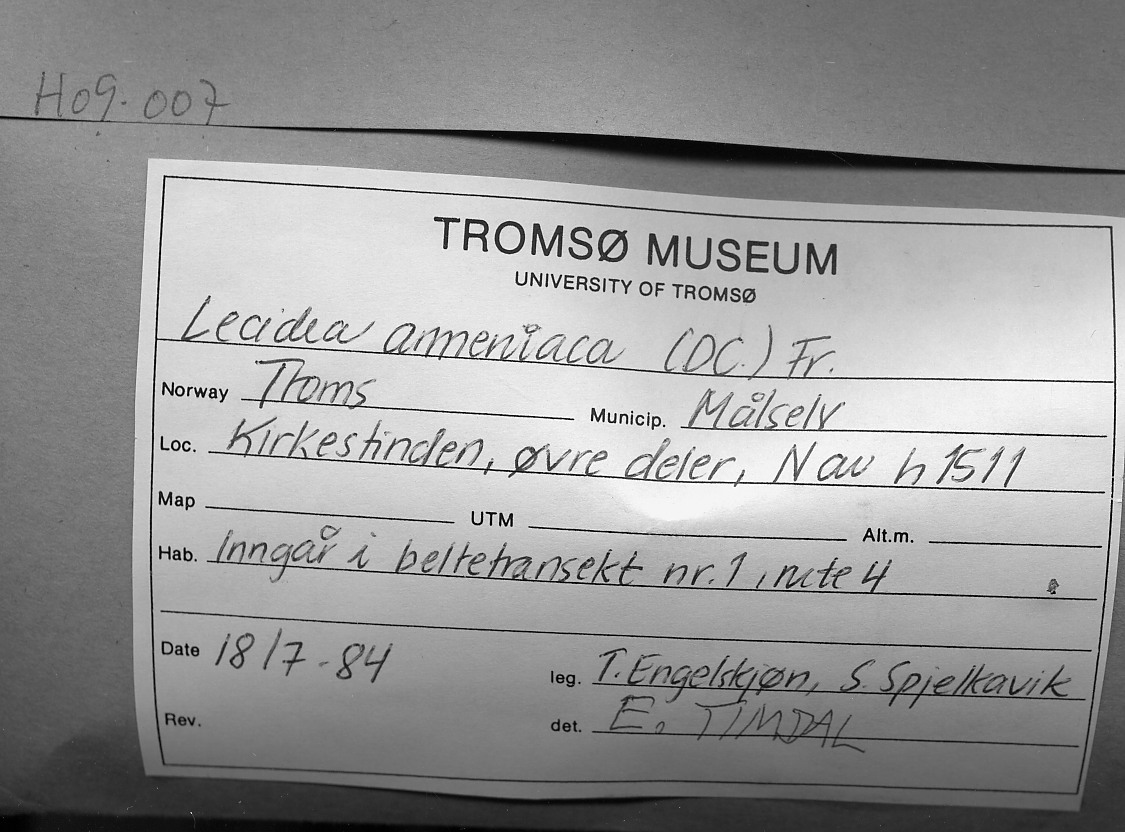 H09-007
TROMSØ MUSEUM
UNIVERSITY OF TROMSØ
Lecidea armeniaca (DC.) Fr.
Norway Troms Municip. Målselv
Loc. Kirkestinden, øvre deler, N av h 1511
Map UTM Alt.m.
Hab. Inngår i beltetransekt nr. 1, rute 4
Date 18/7-84 leg. T. Engelskjøn, S. Spjelkavik
Rev. det. E. TIMDAL